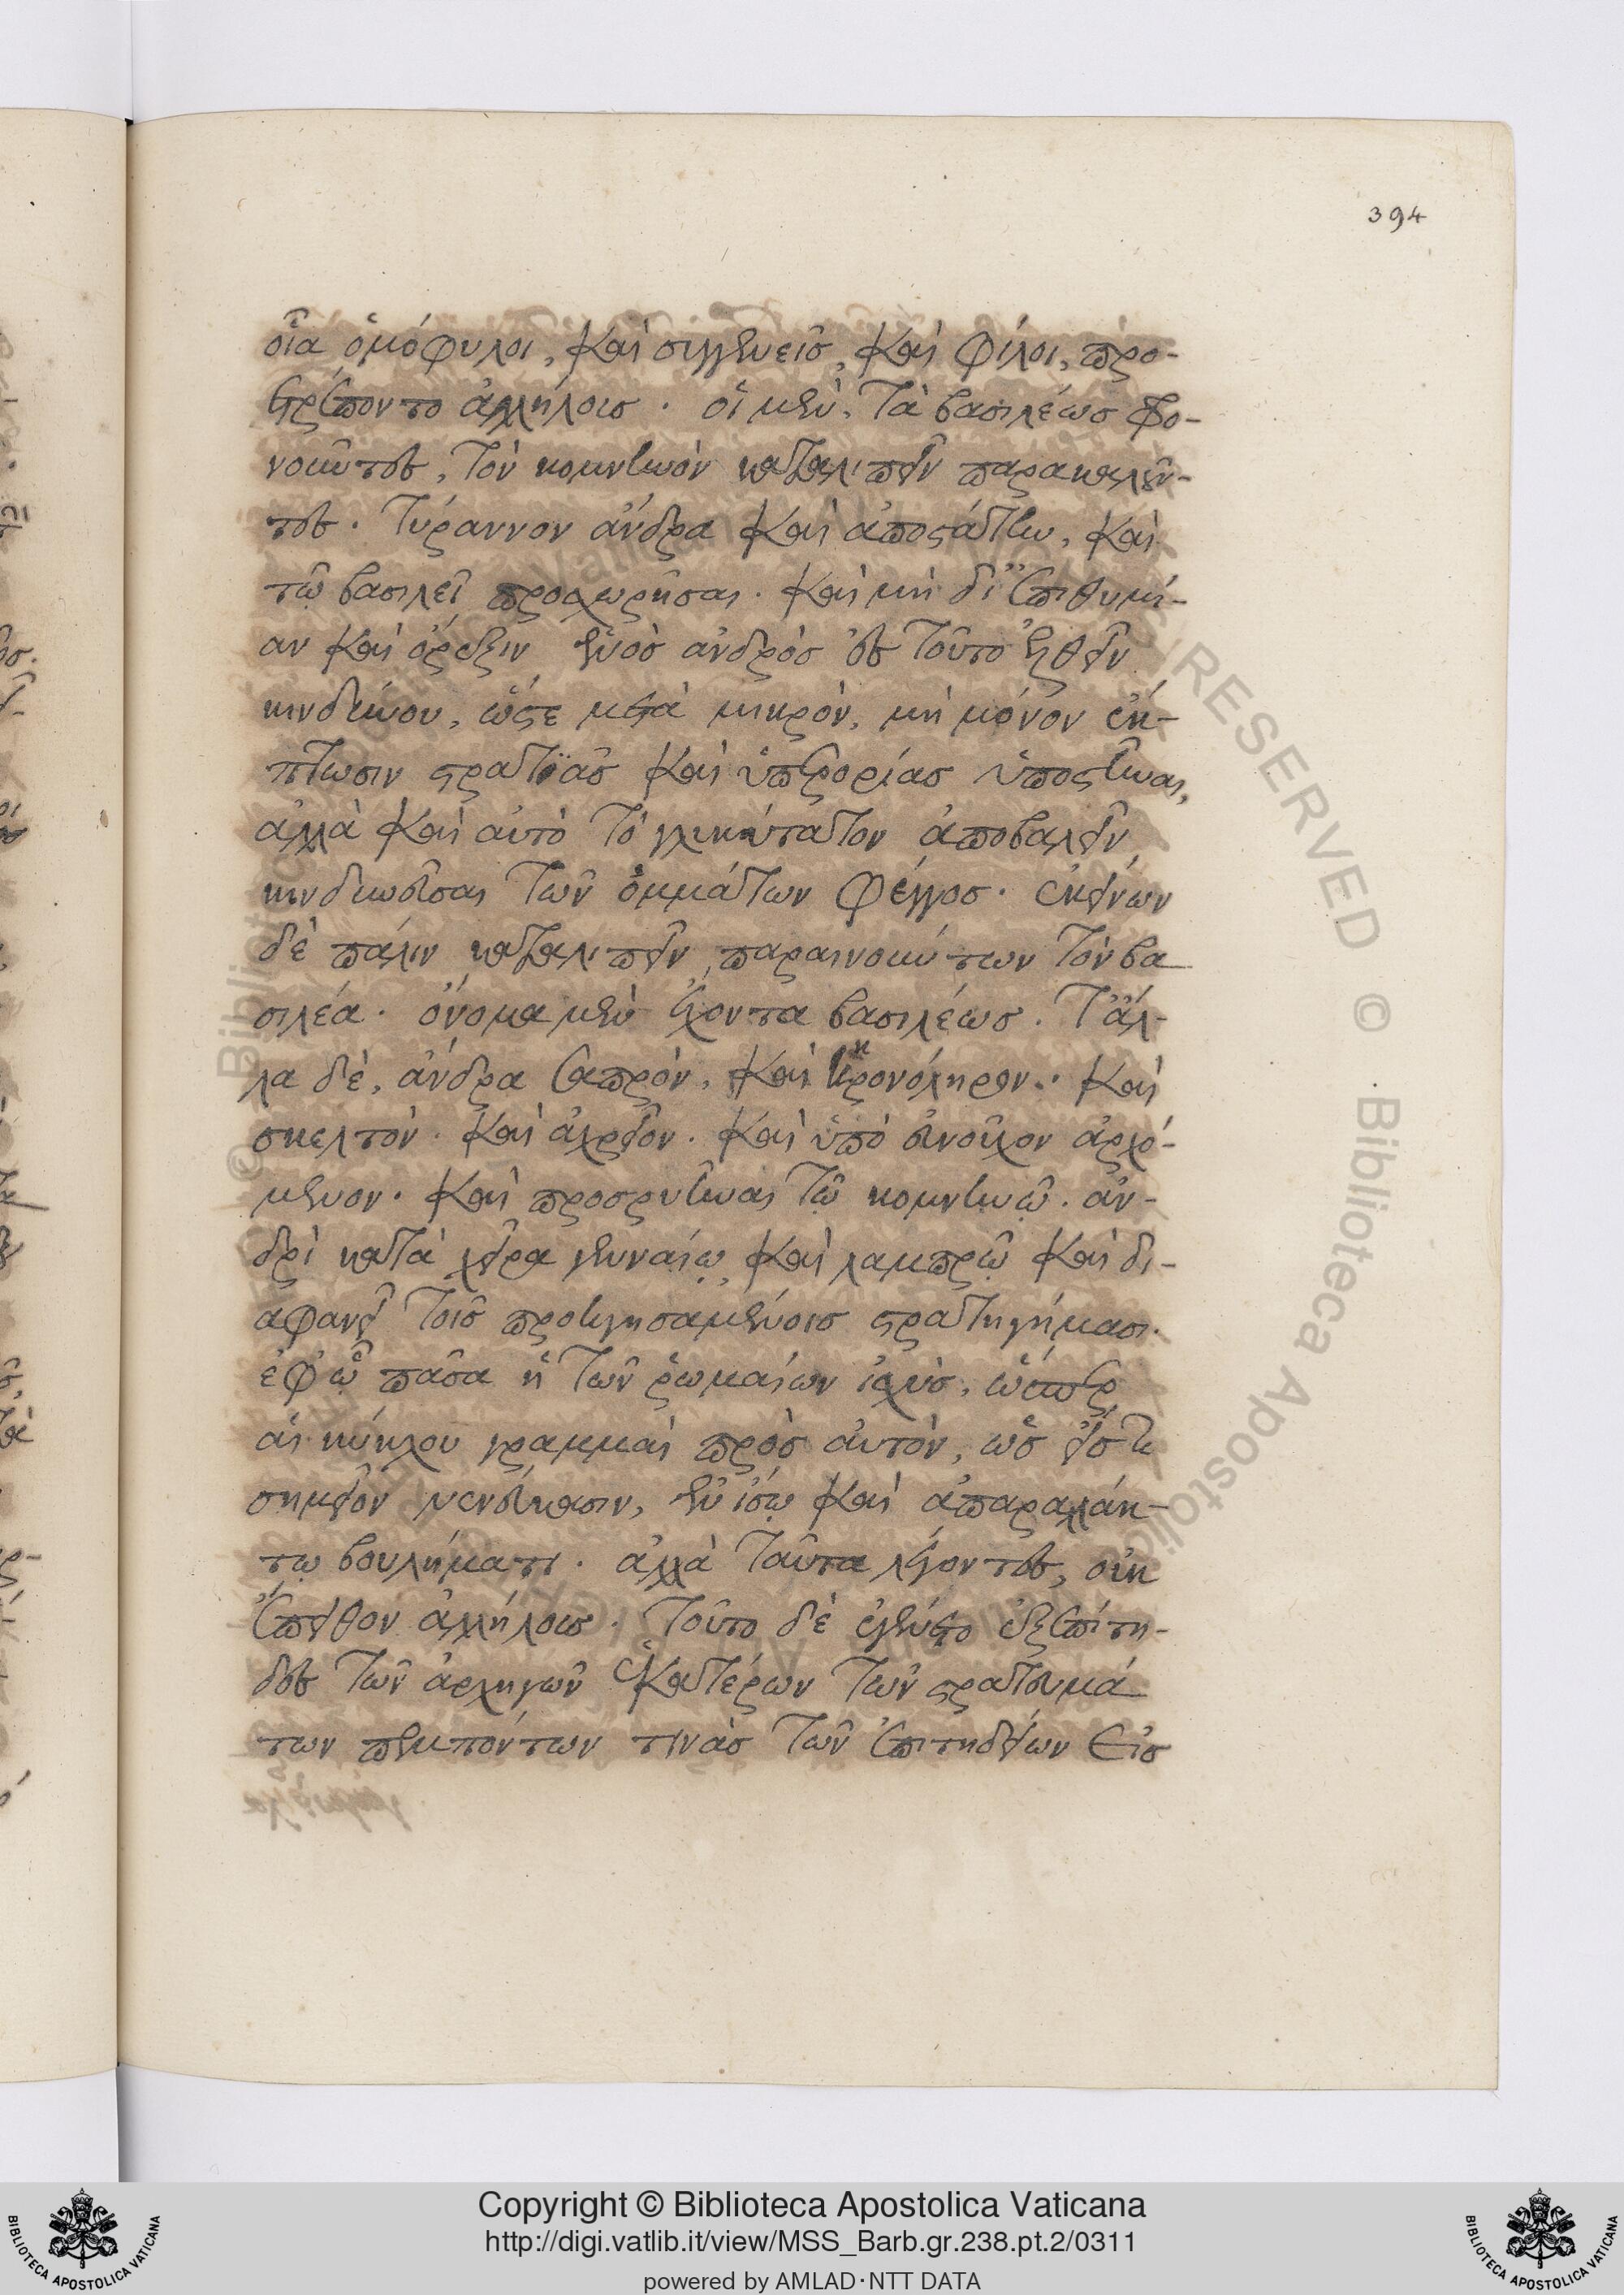 394
οἷα ὁμόφυλοι, καὶ συγγενεῖς, καὶ φίλοι, προ-
ετρέποντο ἀλλήλοις. οἱ μὲν, τὰ βασιλέως φρο-
νοῦντες, τὸν κομνηνὸν καταλιπεῖν παρακαλοῦν-
τες. τύραννον ἄνδρα καὶ ἀποστάτην, καὶ
τῷ βασιλεῖ προσχωρῆσαι. καὶ μὴ δι' ἐπιθυμί-
αν καὶ ὄρεξιν ἑνὸς ἀνδρὸς ἐς τοῦτο ἐλθεῖν
κινδύνου, ὥστε μετὰ μικρὸν, μὴ μόνον ἔκ-
πτωσιν στρατιᾶς καὶ ὑπερορίας ὑποστῆναι,
ἀλλὰ καὶ αὐτὸ τὸ γλυκύτατον ἀποβαλεῖν
κινδυνεῦσαι τῶν ὀμμάτων φέγγος. ἐκείνων
δὲ πάλιν καταλιπεῖν παραινούντων τὸν βα
σιλέα. ὄνομα μὲν ἔχοντα βασιλέως. τἆλ-
λα δὲ, ἄνδρα σαπρὸν, καὶ κρονόληρον. καὶ
σκελτὸν. καὶ ἀχρεῖον. καὶ ὑπὸ εὐνούχων ἀρχό-
μενον. καὶ προσρυῆναι τῷ κομνηνῷ. ἀν-
δρὶ κατὰ χεῖρα γενναίῳ καὶ λαμπρῷ καὶ δι-
αφανεῖ τοῖς προηγησαμένοις στρατηγήμασι.
ἐφ' ᾧ πᾶσα ἡ τῶν ῥωμαίων ἰσχὺς, ὥσπερ
αἱ κύκλου γραμμαὶ πρὸς αὐτὸν, ὡς εἴς τι
σημεῖον νενεύκασιν, ἐν ἴσῳ καὶ ἀπαραλλάκ-
τῳ βουλήματι. ἀλλὰ ταῦτα λέγοντες, οὐκ
ἔπειθον ἀλλήλοις. τοῦτο δὲ ἐγένετο ἐξεπίτη-
δες τῶν ἀρχηγῶν ἑκατέρων τῶν στρατευμά
των πεμπόντων τινὰς τῶν ἐπιτηδείων εἰς
Copyright © Biblioteca Apostolica Vaticana
http://digi.vatlib.it/view/MSS_Barb.gr.238.pt.2/0311
powered by AMLAD·NTT DATA